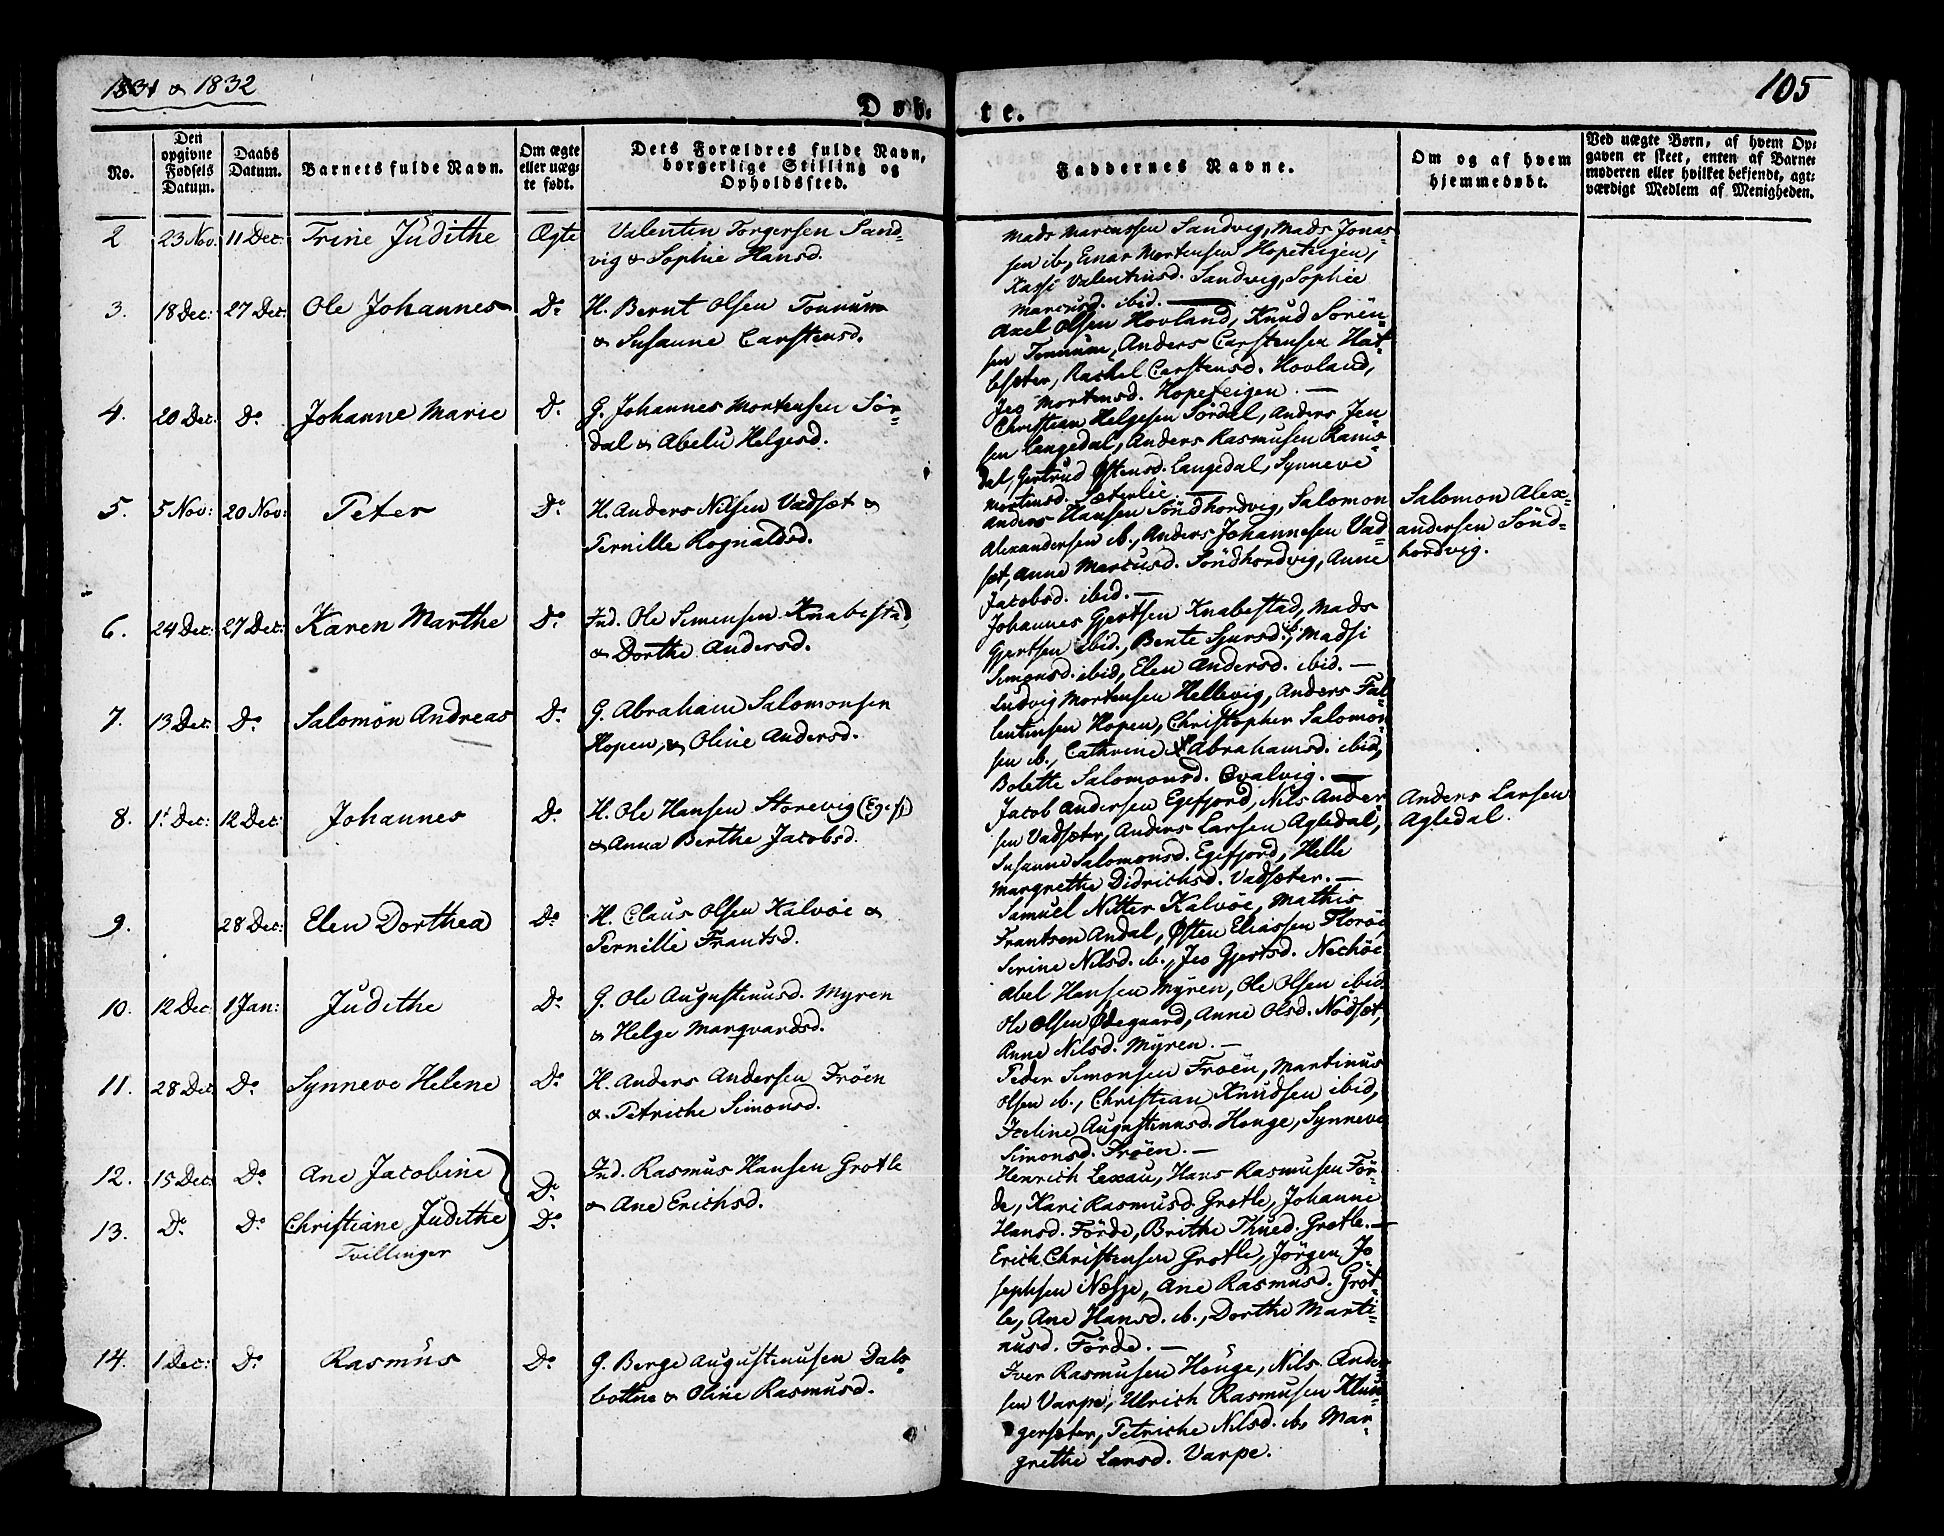 1831 & 1832
105
Døb-
te.
No.
Den opgivne Fødsels Datum.
Daabs Datum.
Barnets fulde Navn.
Om ægte eller uægte født.
Dets Forældres fulde Navn, borgerlige Stilling og Opholdssted.
Faddernes Navne.
Om og af hvem hjemmedøbt.
Ved uægte Børn, af hvem Opgaven er skeet, enten af Barnemoderen eller hvilket bekjendt, agtværdigt Medlem af Menigheden.
2 23 Nov. 11 Dec: Trine Judithe Ægte Valentin Torgersen Sand-
vig & Sophie Hansd.
Mads Marcussen Sandvig, Mads Jonas-
sen ib, Einar Mortensen Hopeteigen,
Kassi Valentinsd. Sandvig, Sophie
Marcusd. ibid. —
3. 18 Dec: 27 Dec: Ole Johannes D° H. Bernt Olsen Tonnum
& Susanne Carstensd.
Axel Olsen Hovland, Knud Sören-
sen Tonnum, Anders Carstensen Hat-
lesæter, Rachel Carstensd. Hovland,
Jeo Mortensd. Hopeteigen. —
4. 20 Dec: D° Johanne Marie D° G. Johannes Mortensen Sör-
dal & Abelu Helgesd.
Christian Helgesen Sördal, Anders Jen-
sen Langedal, Anders Rasmusen Rams-
dal, Gertrud Østensd. Langedal, Synneve
Mortensd. Sæterlie. —
5. 5 Nov: 20 Nov: Peter D° H. Anders Nilsen Vadset &
Pernille Rognaldsd.
Anders Hansen Söndhordvig, Salomon
Alexandersen ib., Anders Johannesen Vad-
set, Anne Marcusd. Söndhordvig, Anne
Jacobsd. ibid. —
Salomon Alex-
andersen Sönd-
hordvig.
6. 24 Dec: 27 Dec: Karen Marthe D° Ind. Ole Simensen Knabestad
& Dorthe Andersd.
Johannes Gjertsen Knabestad, Mads
Gjertsen ibid., Bente Sjursd. ib, Madsi
Simonsd. ibid, Elen Andersd. ibid. —
7. 13 Dec: D° Salomon Andreas D° G. Abraham Salomonsen
Hopen, & Oline Andersd.
Ludvig Mortensen Hellevig, Anders Fal-
lentinsen Hopen, Christopher Salomon-
sen ib., Cathrine Abrahamsd. ibid,
Bolette Salomonsd. Qvalvig. —
8. 1' Dec: 12 Dec: Johannes D° H. Ole Hansen Storevig (Egefj)
& Anna Berthe Jacobsd.
Jacob Andersen Egefjord, Nils Ander-
sen Vadsæter, Anders Larsen Agledal,
Susanne Salomonsd. Egefjord, Helle
Margrethe Didrichsd. Vadsæter. —
Anders Larsen
Agledal.
9. 28 Dec: Elen Dorthea D° H. Claus Olsen Kalvöe &
Pernille Frantsd.
Samuel Nitter Kalvöe, Mathis
Frantsen Andal, Østen Eliassen Floröe
Serine Nilsd. ib., Jeo Gjertsd. Nechöe
10. 12 Dec: 1 Jan: Judithe D° G. Ole Augustinusd. Myren
& Helge Marqvardsd.
Abel Hansen Myren, Ole Olsen ibid.
Ole Olsen Ødegaard, Anne Olsd. Nödset,
Anne Nilsd. Myren. —
11. 28 Dec D° Synneve Helene D° H. Anders Andersen Fröen
& Petriche Simonsd.
Peder Simonsen Fröen, Martinus
Olsen ib., Christian Knudsen ibid,
Iveline Augustinusd. Houge, Synneve
Simonsd. Fröen. —
12. 15 Dec: D° Ane Jacobine D° Ind. Rasmus Hansen Grotle
& Ane Erichsd.
Henrich Lexau, Hans Rasmusen För-
de, Kari Rasmusd. Grotle, Johanne
Hansd. Förde, Brithe Thued. Grotle. —
13. D° D° Christiane Judithe D°
Tvillinger
Erich Christensen Grotle, Jörgen Jo
sephsen Næsje, Ane Rasmusd. Grot-
le, Ane Hansd. ib., Dorthe Marti-
nusd. Förde. —
14. 1 Dec: D° Rasmus D° G. Berge Augustinusen Dals-
bottne & Oline Rasmusd.
Iver Rasmusen Houge, Nils Ander-
sen Varpe, Ulrich Rasmusen Klun-
gersæter, Petriche Nilsd. ib, Mar-
grethe Larsd. Varpe.